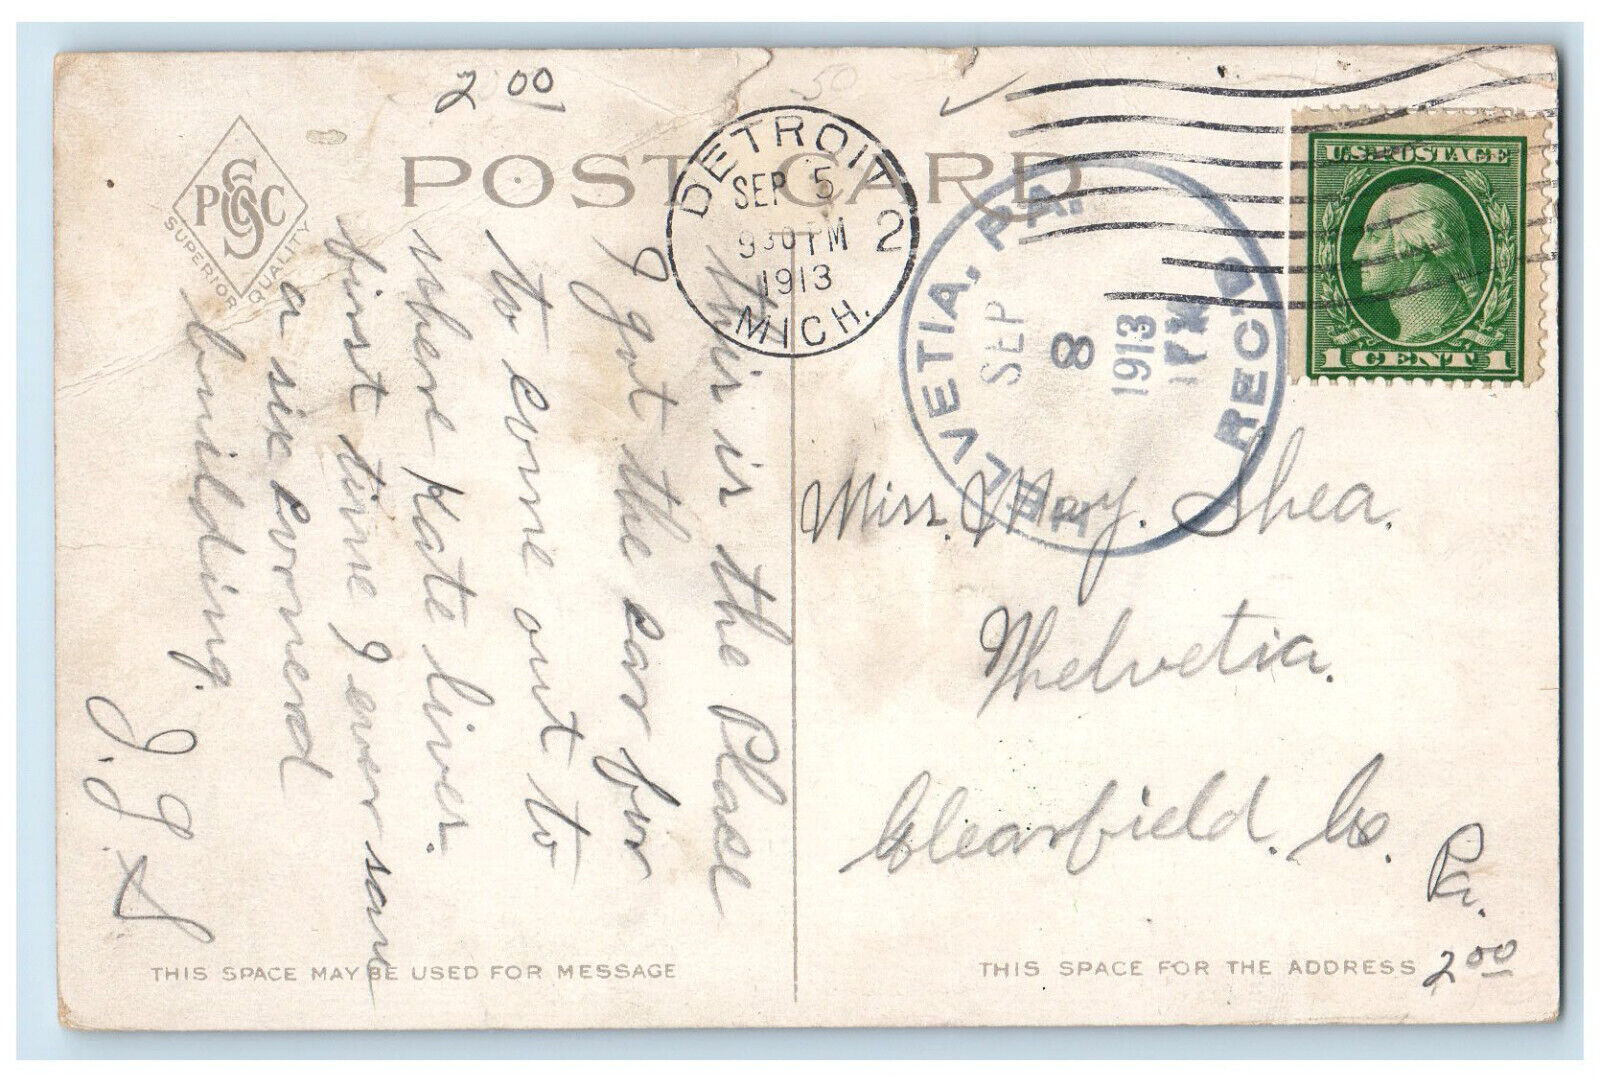 2 00
50
POST CARD
PSC
SUPERIOR QUALITY
DETROIT
SEP 5
930 PM
1913
2
MICH.
HELVETIA, PA.
SEP
8
1913
REC'D
U.S. POSTAGE
1 CENT 1
This is the Place
I got the car for
to come out to
where Kate lives.
first time I ever saw
a six cornered
building.
J. J. S
Miss. May. Shea.
Helvetia.
Clearfield. Co.
Pa.
2 00
THIS SPACE MAY BE USED FOR MESSAGE
THIS SPACE FOR THE ADDRESS